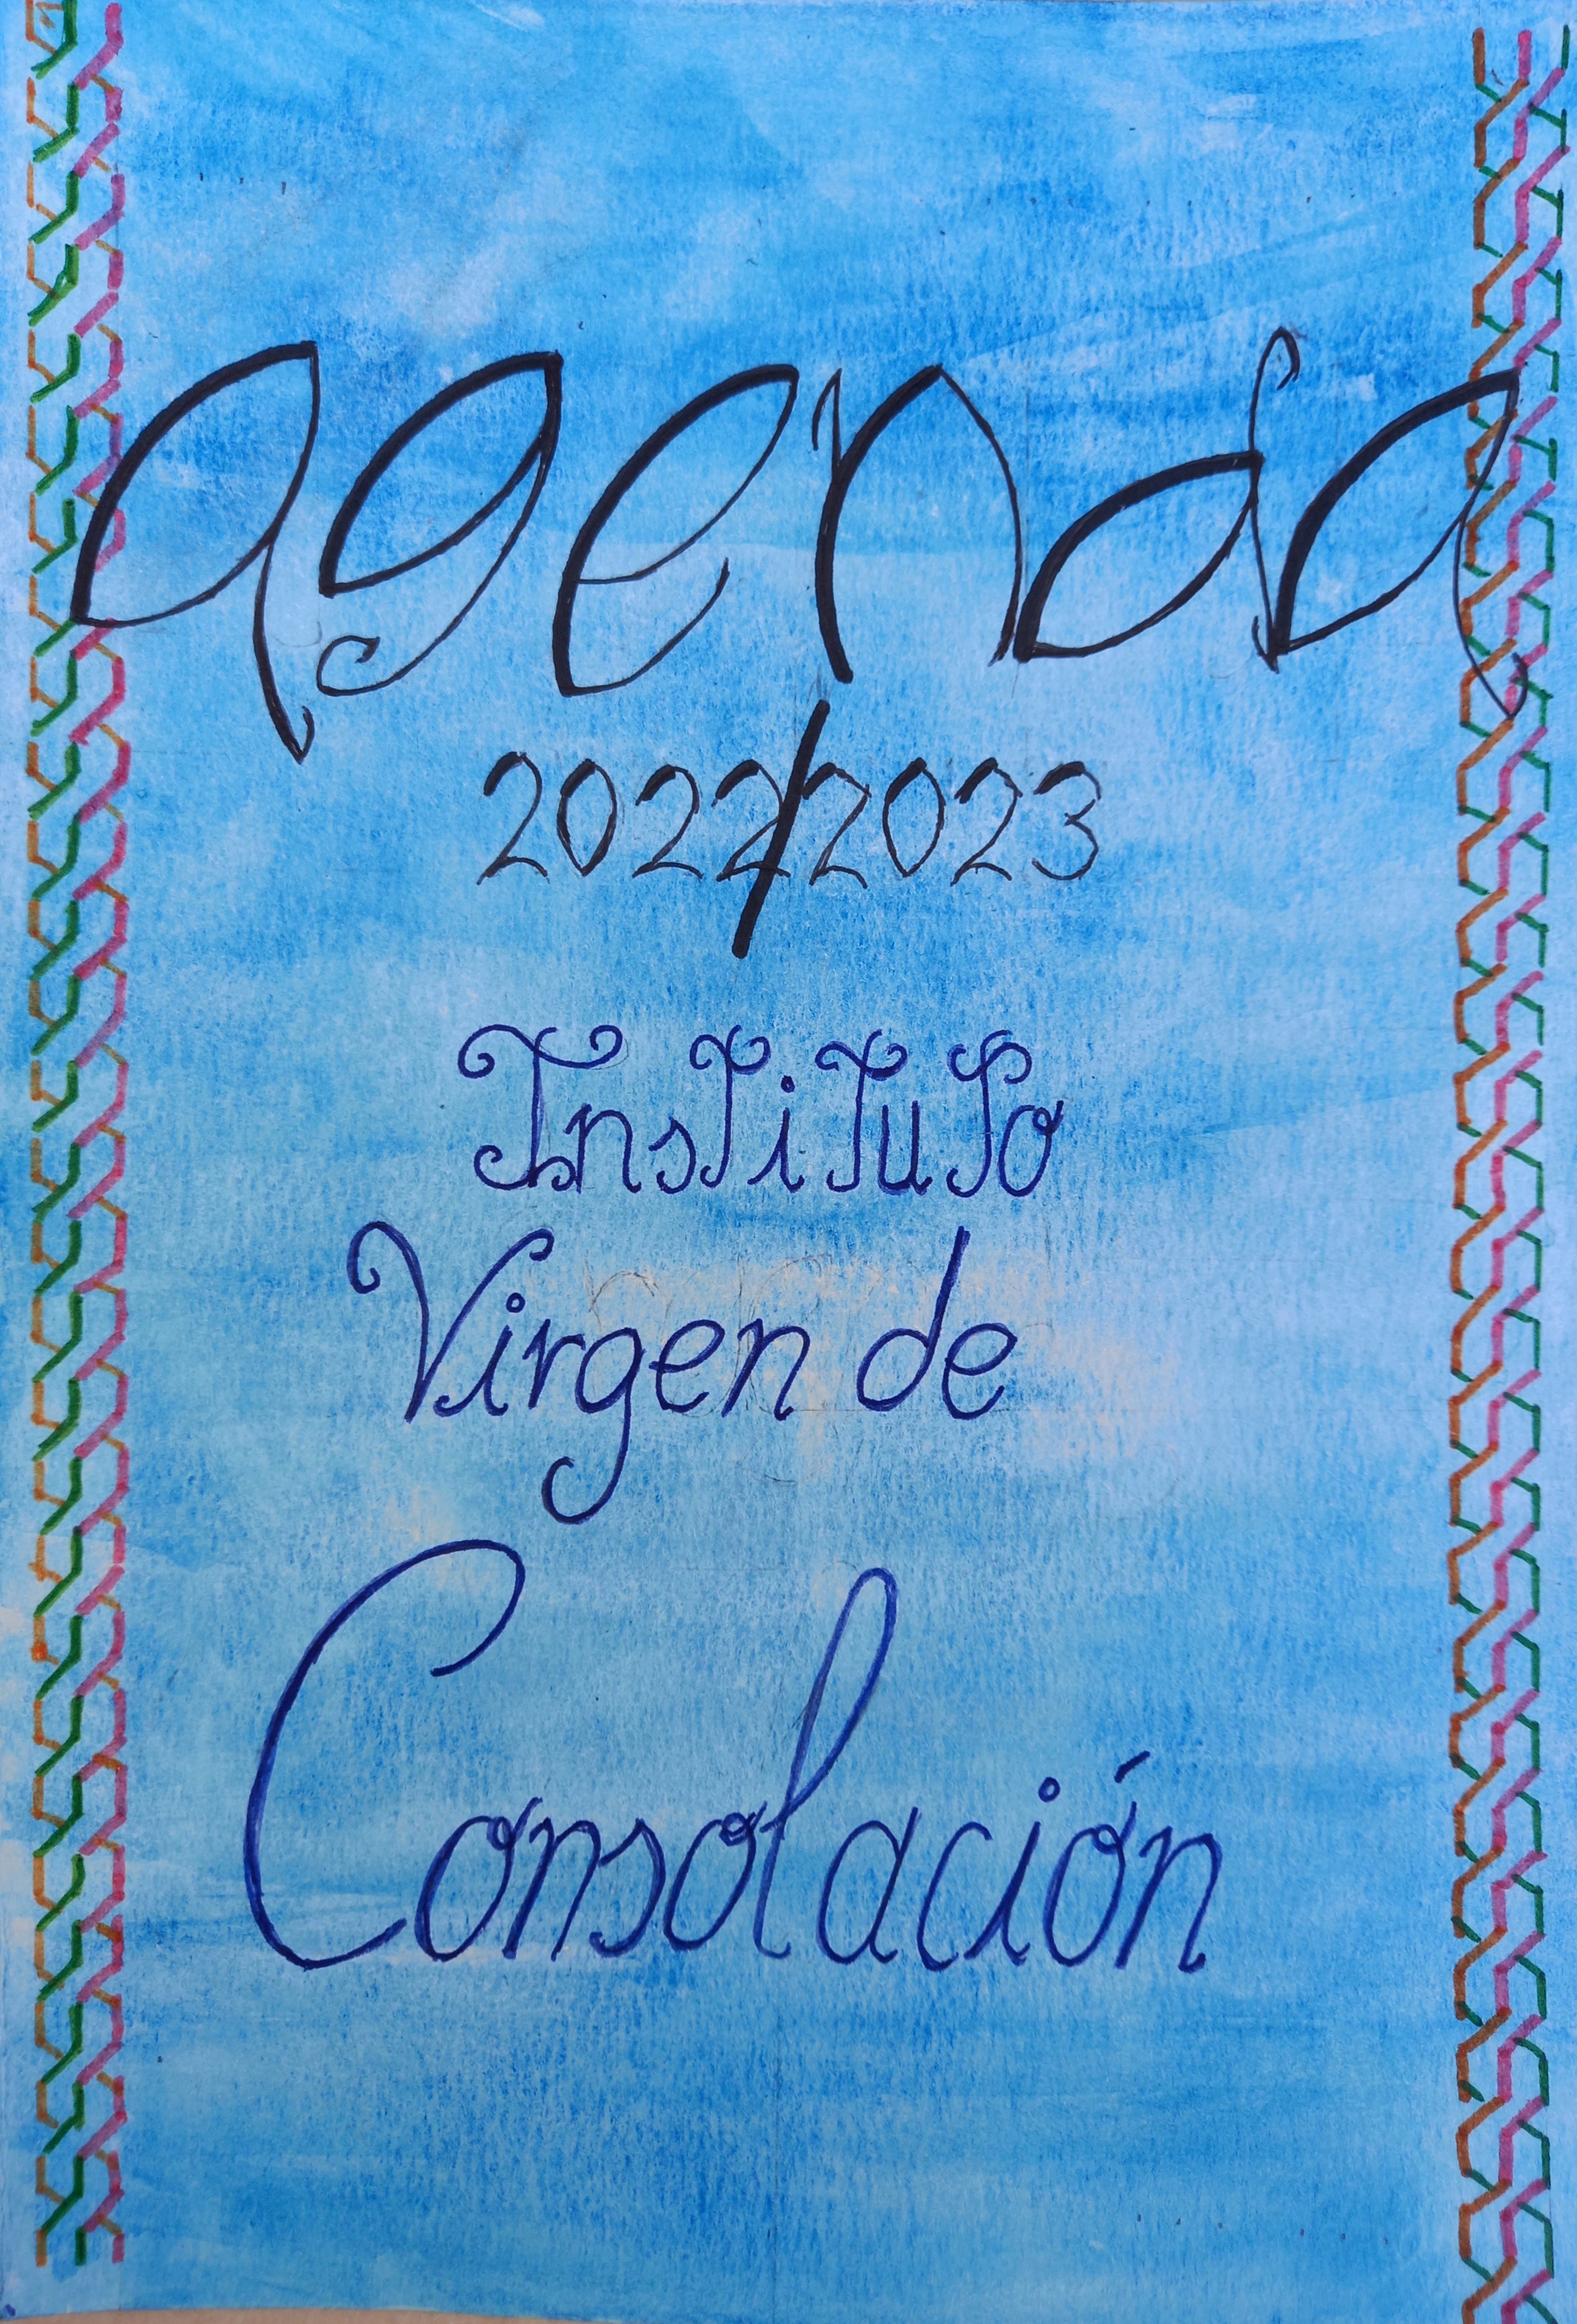 agenda
2022/2023
Instituto
Virgen de
Consolación